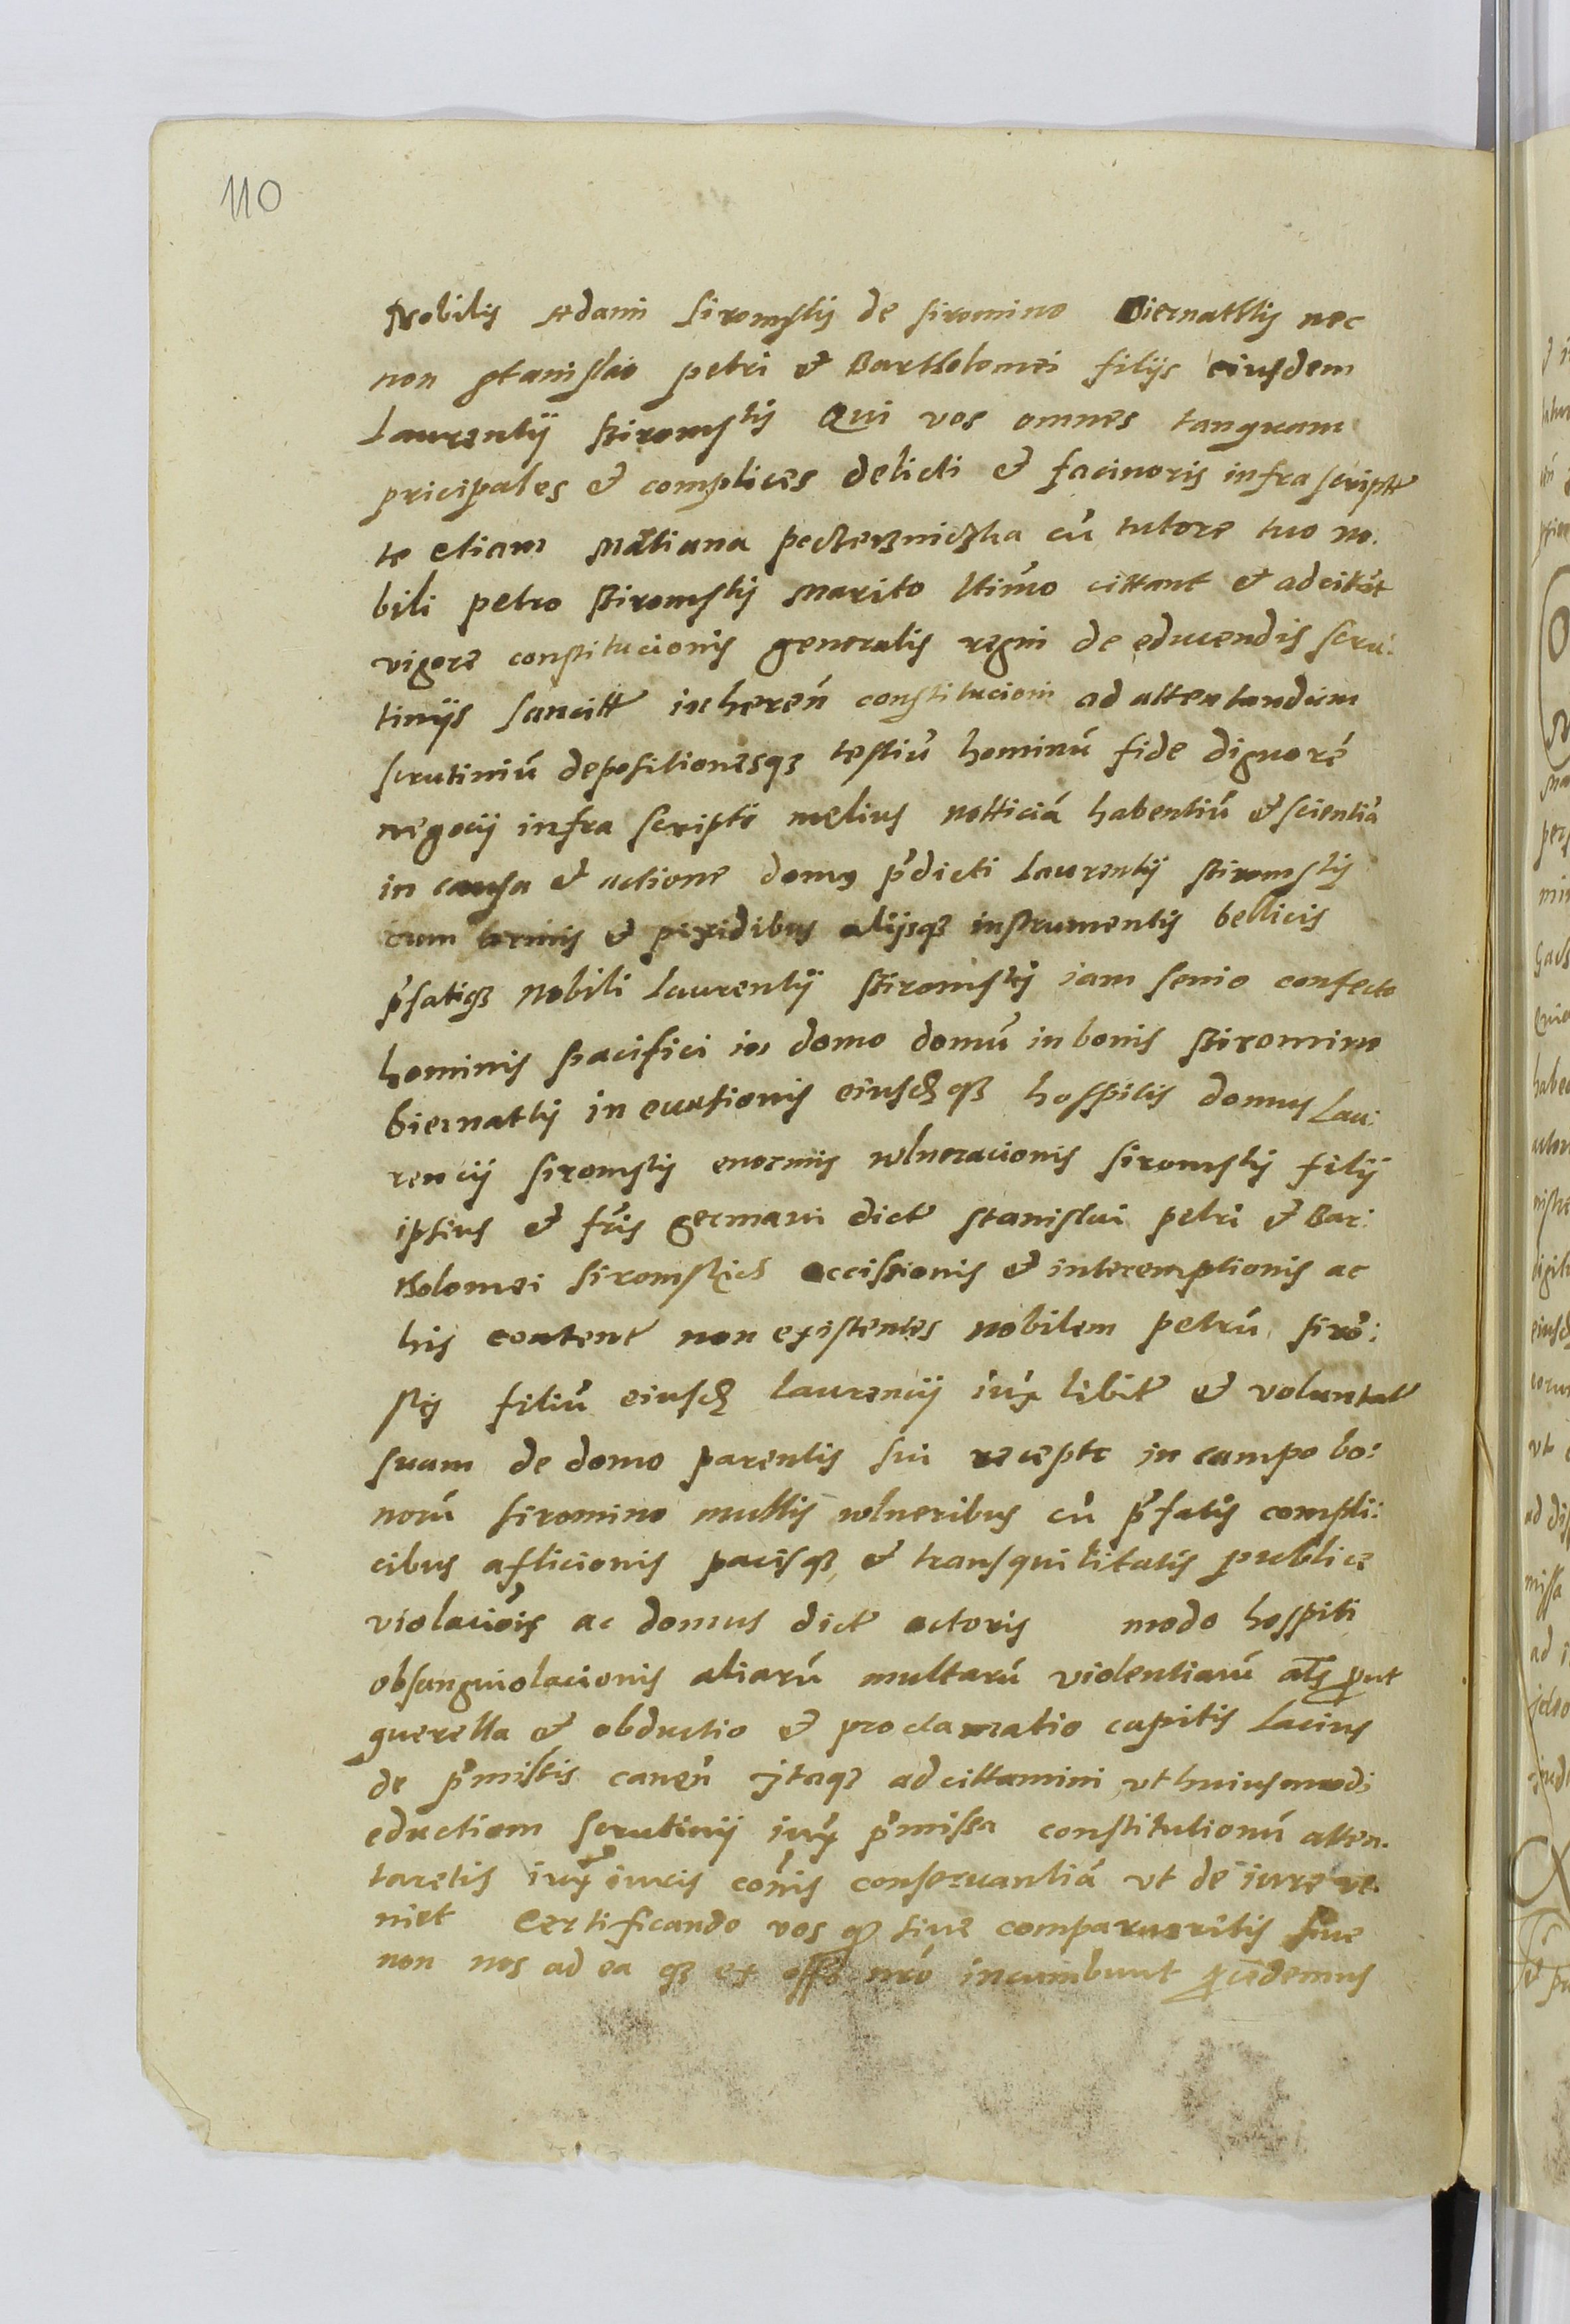 110
Nobilis Adami siromskij de siromino Biernathkij nec
non stanislao petri et Bartholomei filijs eiusdem
Laurentij siromskij Qui vos omnes tanquam
pricipales et complices delicti et facinoris infra script
te etiam cũ tutore tuo no.
bili petro siromskij Marito lĩtimo cittant et adcitãt
vigore constitucionis generalis regni de educendis scru:
tinijs sancitt inhereñ constitucioni ad attentandum
scrutiniũ depositionesq; testiũ hominũ fide dignorũ
negocij infra scripti melius notticiã habentiũ et scientiã
in causa et actione domus p̃dicti Laurentij siromskij
cum armis et pixidibus alijsq; instrumentis bellicis
p̃fatiq; Nobili Laurentij siromskij iam senio confecto
hominis pacifici in domo domũ in bonis siromino
biernatkij invasionis eiusdq; hospitis domus Lau:
rencij siromskij enormis wlneracionis siromskij filij
ipsius et fr̃is germani dict stanislai petri et Bar:
tholomei siromskich occissionis et interemptionis ac
his content non existentes nobilem petrũ sirõ:
skij filiũ eiusd Laurencij iux̃ libit et voluntat
suam de domo parentis sui recept in campo bo:
norũ siromino multis wlneribus cũ p̃fatis compli:
cibus aflicionis pacisq; et transquilitatis publice
violaciõis ac domus dict actoris modo hospiti
obsanguiolacionis aliarũ multarũ violentiarũ als̃ p̃ut
querella et obductio et proclamatio capitis lacius
de p̃missis caneñ jtaq; adcittamini vt huiusmodi
eductiom scrutinij iux̃ p̃missa constitutionũ atten.
taretis iux̃ iuris cõnis conseruantiã vt de iure ve.
niet Certificando vos q siue comparueritis siue
non nos ad ea q; ex offõ nrõ incumbunt p̃cedemus